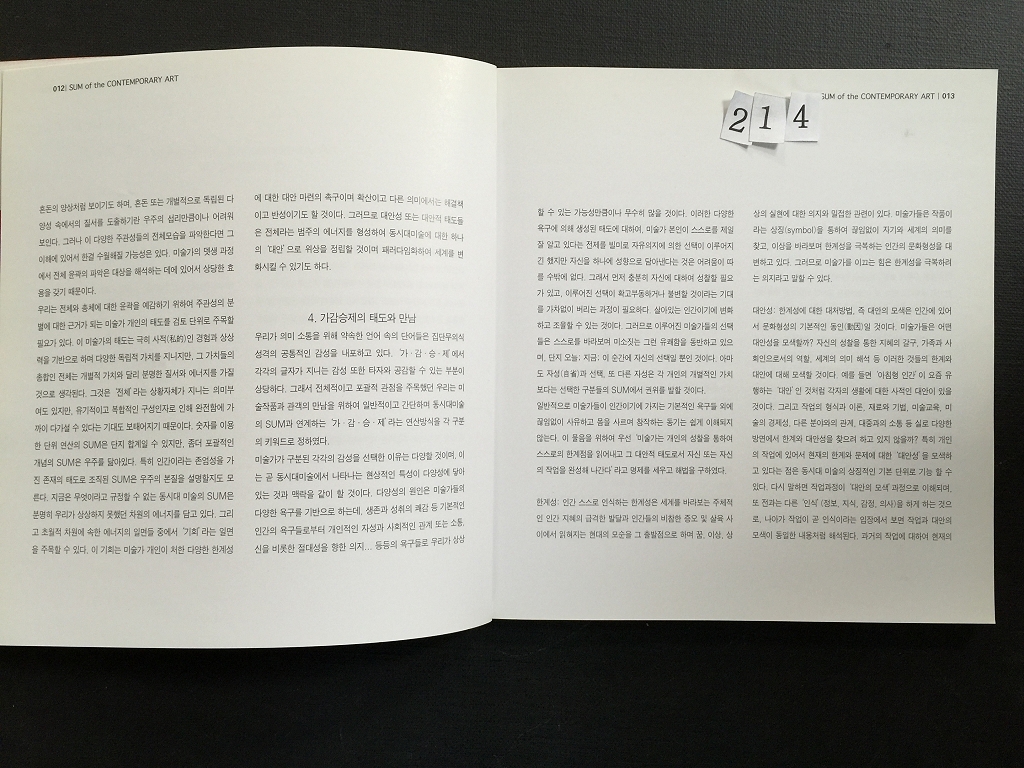 012| SUM of the CONTEMPORARY ART
혼돈의 양상처럼 보이기도 하며, 혼돈 또는 개별적으로 독립된 다
양성 속에서의 질서를 도출하기란 우주의 섭리만큼이나 어려워
보인다. 그러나 이 다양한 주관성들의 전체모습을 파악한다면 그
이해에 있어서 한결 수월해질 가능성은 있다. 미술가의 옛생 과정
에서 전체 윤곽의 파악은 대상을 해석하는 데에 있어서 상당한 효
용을 갖기 때문이다.
우리는 전체와 총체에 대한 윤곽을 예감하기 위하여 주관성의 분
별에 대한 근거가 되는 미술가 개인의 태도를 검토 단위로 주목할
필요가 있다. 이 미술가의 태도는 극히 사적(私的)인 경험과 상상
력을 기반으로 하며 다양한 독립적 가치를 지니지만, 그 가치들의
총합인 전체는 개별적 가치와 달리 분명한 질서와 에너지를 가질
것으로 생각된다. 그것은 '전체'라는 상황자체가 지니는 의미부
여도 있지만, 유기적이고 복합적인 구성인자로 인해 완전함에 가
까이 다가설 수 있다는 기대도 보태어지기 때문이다. 숫자를 이용
한 단위 연산의 SUM은 단지 합계일 수 있지만, 좀더 포괄적인
개념의 SUM은 우주를 닮아있다. 특히 인간이라는 존엄성을 가
진 존재의 태도로 조직된 SUM은 우주의 본질을 설명할지도 모
른다. 지금은 무엇이라고 규정할 수 없는 동시대 미술의 SUM은
분명히 우리가 상상하지 못했던 차원의 에너지를 담고 있다. 그리
고 초월적 차원에 속한 에너지의 일면들 중에서 '기회'라는 일면
을 주목할 수 있다. 이 기회는 미술가 개인이 처한 다양한 한계성
에 대한 대안 마련의 촉구이며 확산이고 다른 의미에서는 해결책
이고 반성이기도 할 것이다. 그러므로 대안성 또는 대안적 태도들
은 전체라는 범주의 에너지를 형성하여 동시대미술에 대한 하나
의 '대안'으로 위상을 정립할 것이며 패러다임화하여 세계를 변
화시킬 수 있기도 하다.
4. 가감승제의 태도와 만남
우리가 의미 소통을 위해 약속한 언어 속의 단어들은 집단무의식
성격의 공통적인 감성을 내포하고 있다. '가·감·승·제'에서
각각의 글자가 지니는 감성 또한 타자와 공감할 수 있는 부분이
상당하다. 그래서 전체적이고 포괄적 관점을 주목했던 우리는 미
술작품과 관객의 만남을 위하여 일반적이고 간단하며 동시대미술
의 SUM과 연계하는 '가·감·승·제'라는 연산방식을 각 구분
의 키워드로 정하였다.
미술가가 구분된 각각의 감성을 선택한 이유는 다양할 것이며, 이
는 곧 동시대미술에서 나타나는 현상적인 특성이 다양성에 닿아
있는 것과 맥락을 같이 할 것이다. 다양성의 원인은 미술가들의
다양한 욕구를 기반으로 하는데, 생존과 성취의 쾌감 등 기본적인
인간의 욕구들로부터 개인적인 자성과 사회적인 관계 또는 소통,
신을 비롯한 절대성을 향한 의지... 등등의 욕구들로 우리가 상상
SUM of the CONTEMPORARY ART | 013
2 1 4
할 수 있는 가능성만큼이나 무수히 많을 것이다. 이러한 다양한
욕구에 의해 생성된 태도에 대하여, 미술가 본인이 스스로를 제일
잘 알고 있다는 전제를 빌미로 자유의지에 의한 선택이 이루어지
긴 했지만 자신을 하나에 성향으로 담아낸다는 것은 어려움이 따
를 수밖에 없다. 그래서 먼저 충분히 자신에 대하여 성찰할 필요
가 있고, 이루어진 선택이 확고부동하거나 불변할 것이라는 기대
를 가차없이 버리는 과정이 필요하다. 살아있는 인간이기에 변화
하고 조율할 수 있는 것이다. 그러므로 이루어진 미술가들의 선택
들은 스스로를 바라보며 미소짓는 그런 유쾌함을 동반하고 있으
며, 단지 오늘; 지금; 이 순간에 자신의 선택일 뿐인 것이다. 아마
도 자성(自省)과 선택, 또 다른 자성은 각 개인의 개별적인 가치
보다는 선택한 구분들의 SUM에서 권위를 발할 것이다.
일반적으로 미술가들이 인간이기에 가지는 기본적인 욕구들 외에
끊임없이 사유하고 뜻을 사르며 창작하는 동기는 쉽게 이해되지
않는다. 이 물음을 위하여 우선 '미술가는 개인의 성찰을 통하여
스스로의 한계점을 읽어내고 그 대안적 태도로서 자신 또는 자신
의 작업을 완성해 나간다'라고 명제를 세우고 해법을 구하였다.
한계성: 인간 스스로 인식하는 한계성은 세계를 바라보는 주체적
인 인간 지혜의 급격한 발달과 인간들의 비참한 증오 및 살육 사
이에서 읽혀지는 현대의 모순을 그 출발점으로 하며 꿈, 이상, 상
상의 실현에 대한 의지와 밀접한 관련이 있다. 미술가들은 작품이
라는 상징(symbol)을 통하여 끊임없이 자기와 세계의 의미를
찾고, 이상을 바라보며 한계성을 극복하는 인간의 문화형성을 대
변하고 있다. 그러므로 미술가를 이끄는 힘은 한계성을 극복하려
는 의지라고 말할 수 있다.
대안성: 한계성에 대한 대처방법, 즉 대안의 모색은 인간에 있어
서 문화형성의 기본적인 동인(動因)일 것이다. 미술가들은 어떤
대안성을 모색할까? 자신의 성찰을 통한 지혜의 갈구, 가족과 사
회인으로서의 역할, 세계의 의미 해석 등 이러한 것들의 한계와
대안에 대해 모색할 것이다. 예를 들면 '아침형 인간'이 요즘 유
행하는 '대안'인 것처럼 각자의 생활에 대한 사적인 대안이 있을
것이다. 그리고 작업의 형식과 이론, 재료와 기법, 미술교육, 미
술의 경제성, 다른 분야와의 관계, 대중과의 소통 등 실로 다양한
방면에서 한계와 대안성을 찾으려 하고 있지 않을까? 특히 개인
의 작업에 있어서 현재의 한계와 문제에 대한 '대안성'을 모색하
고 있다는 점은 동시대 미술의 상징적인 기본 단위로 기능 할 수
있다. 다시 말하면 작업과정이 '대안의 모색'과정으로 이해되며,
또 전과는 다른 '인식'(정보, 지식, 감정, 의사)을 하게 하는 것으
로, 나아가 작업이 곧 인식이라는 입장에서 보면 작업과 대안의
모색이 동일한 내용처럼 해석된다. 과거의 작업에 대하여 현재의